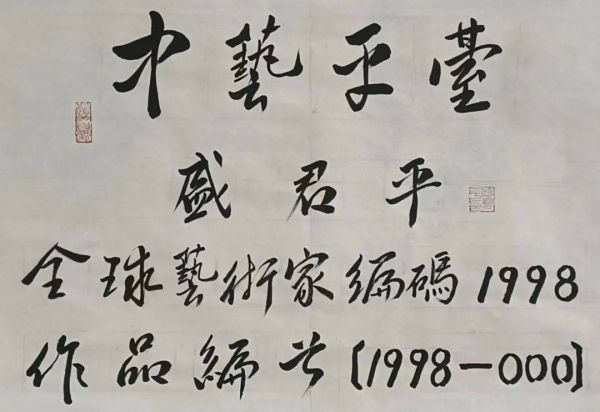 中藝平臺
盛君平
全球藝術家編碼1998
作品編号〔1998—000〕